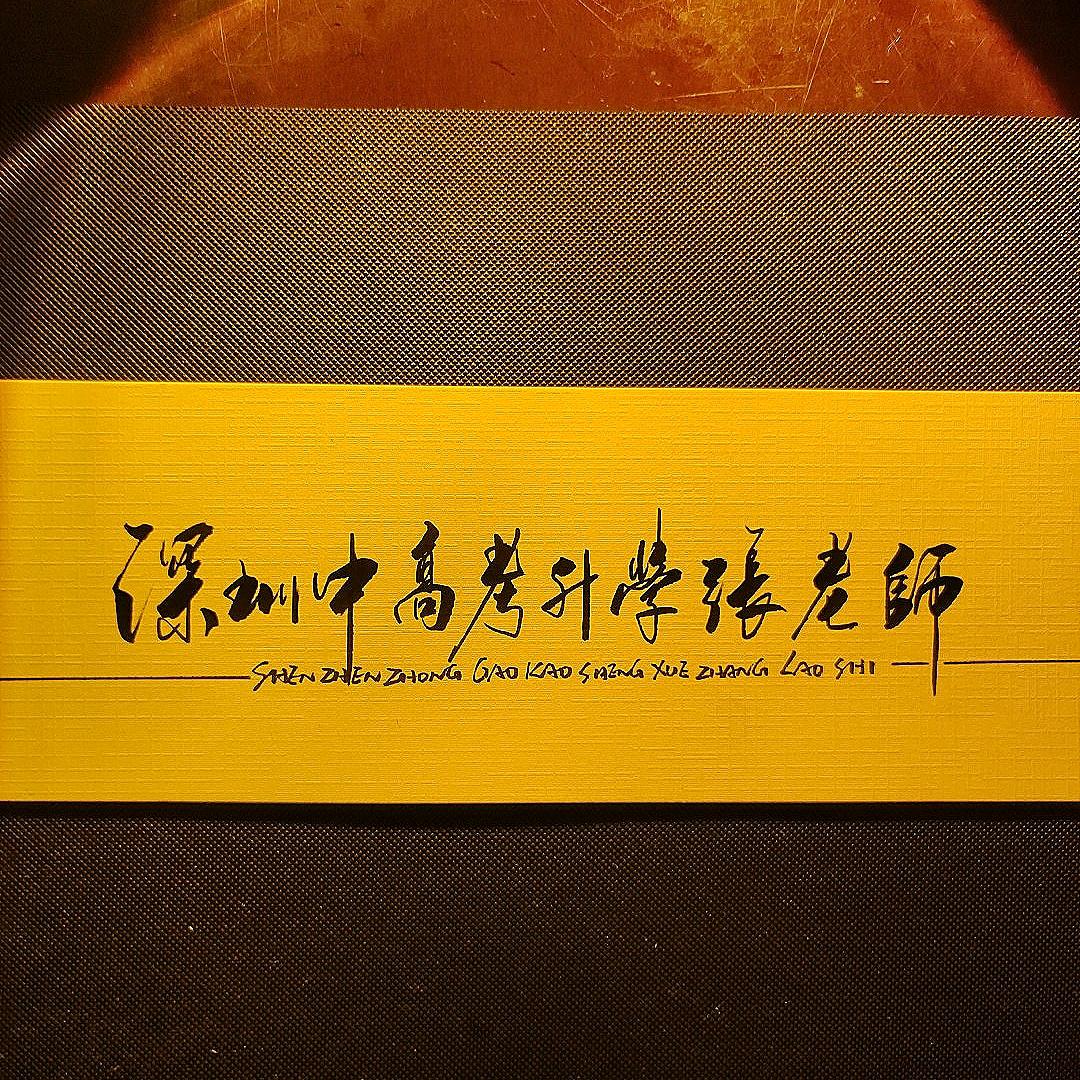 深圳中高考升學張老師
SHEN ZHEN ZHONG GAO KAO SHENG XUE ZHANG LAO SHI